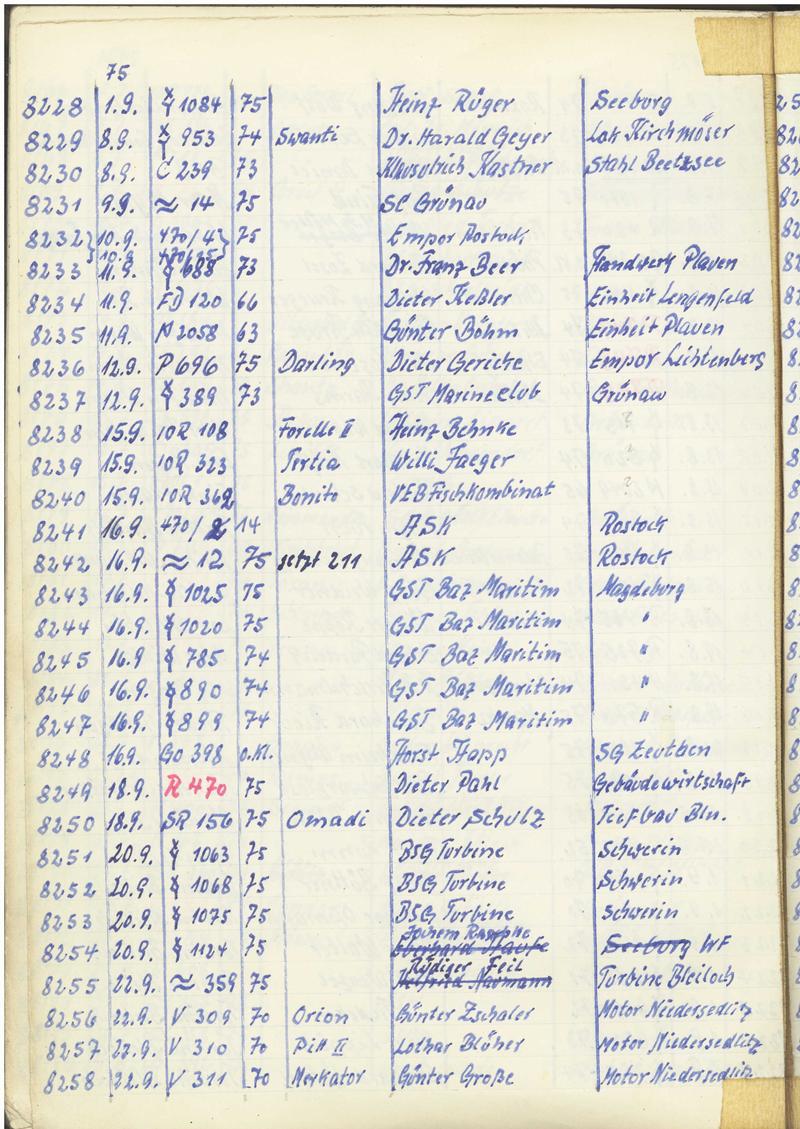 75
8228 1.9. 1084 75 Heinz Rüger Seeburg
8229 8.9. 953 74 Swanti Dr. Harald Geyer Lok Kirchmöser
8230 8.9. C 239 73 Klausulrich Kastner Stahl Beetzsee
8231 9.9. ≈ 14 75 SC Grünau
8232 10.9. 470/4 75 Empor Rostock
8233 11.9. 688 73 Dr. Franz Beer Handwerk Plauen
8234 11.9. FD 120 66 Dieter Keßler Einheit Lengenfeld
8235 11.9. 2058 63 Günter Böhm Einheit Plauen
8236 12.9. P 696 75 Darling Dieter Gericke Empor Lichtenberg
8237 12.9. 389 73 GST Marineclub Grünau
8238 15.9. 10R 108 Forelle II Heinz Behnke ?
8239 15.9. 10R 323 Tertia Willi Jaeger ?
8240 15.9. 10R 362 Bonito VEB Fischkombinat ?
8241 16.9. 470/ 14 ASK Rostock
8242 16.9. ≈ 12 75 jetzt 211 ASK Rostock
8243 16.9. 1025 75 GST Baz Maritim Magdeburg
8244 16.9. 1020 75 GST Baz Maritim "
8245 16.9 785 74 GST Baz Maritim "
8246 16.9. 890 74 GST Baz Maritim "
8247 16.9. 899 74 GST Baz Maritim "
8248 16.9. Go 398 o.Kl. Horst Happ SG Zeuthen
8249 18.9. R 470 75 Dieter Pahl Gebäudewirtschaft
8250 18.9. SR 156 75 Omadi Dieter Schulz Tiefbau Bln.
8251 20.9. 1063 75 BSG Turbine Schwerin
8252 20.9. 1068 75 BSG Turbine Schwerin
8253 20.9. 1075 75 BSG Turbine Schwerin
8254 20.9. 1124 75 Seeburg WF
Rüdiger Feil
8255 22.9. ≈ 359 75 Turbine Bleiloch
8256 22.9. V 309 70 Orion Günter Zschaler Motor Niedersedlitz
8257 22.9. V 310 70 Pitt II Lothar Blüher Motor Niedersedlitz
8258 22.9. V 311 70 Merkator Günter Große Motor Niedersedlitz